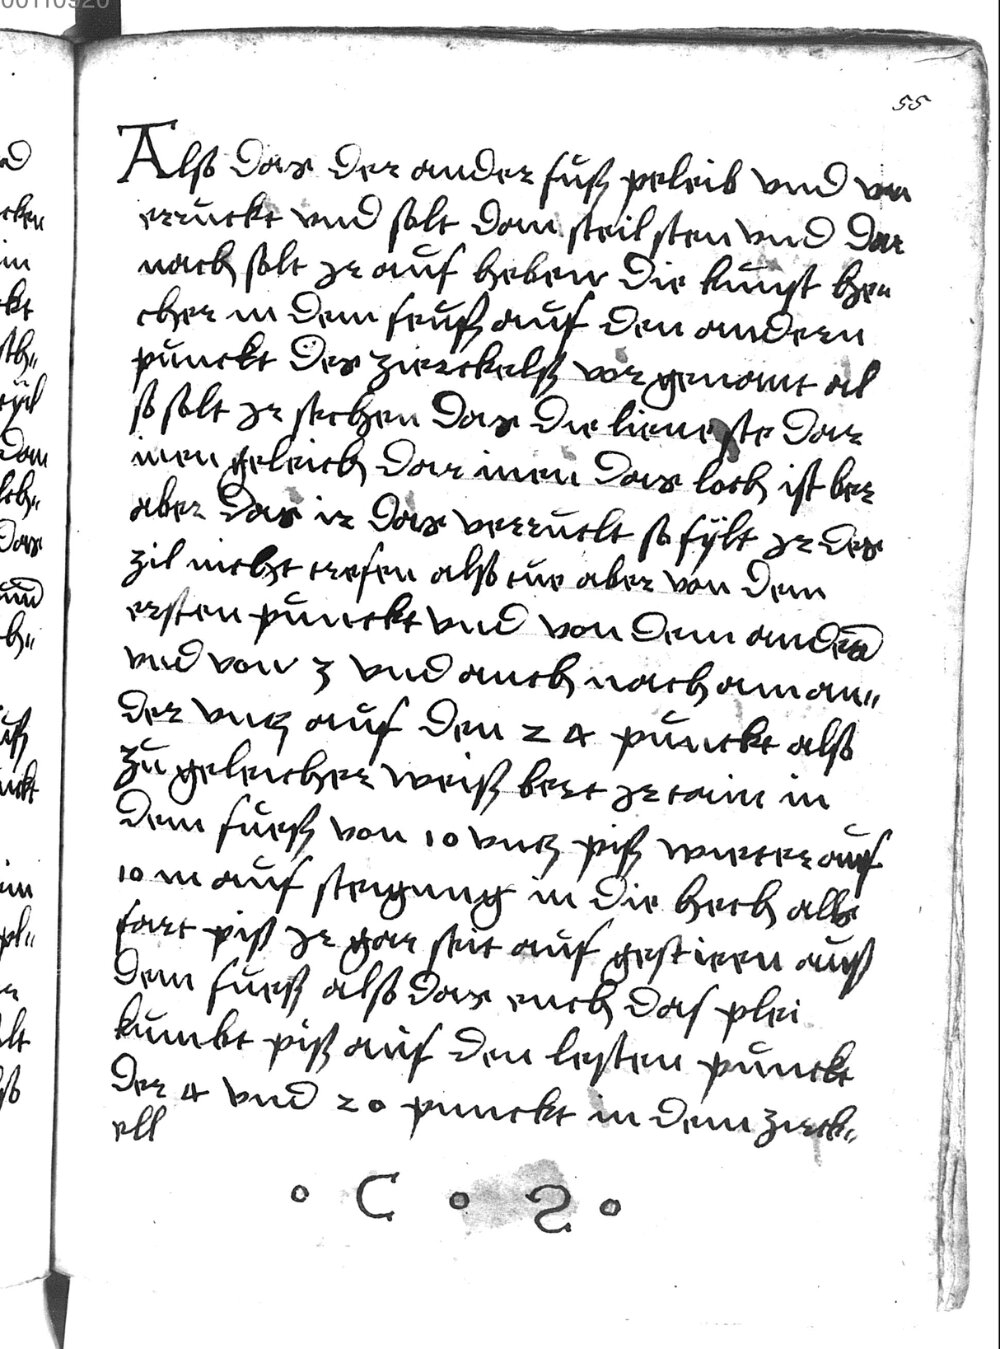 55
Alß das der ander fuß peleib vnd vn
erruckt vnd solt dan steil sten vnd dar
nach solt jr auf heben die kunst he¬
cher in dem feuß auf den andern
punckt des zierckelß vor genant al
so solt jr stechen das die liene ste dar
inen geleich dar inen das loch ist ber
aber das ir das verruckt so fÿlt jr des
zil nicht trefen alß tue aber von dem
ersten punckt vnd von dem andern
vnd von 3 vnd auch nach ainan„
der vntz auf den 24 punckt alß
zu geleicher weiß bert jr tain in
dem fueß von 10 vntz piß wieter auf
10 in auf steigung in die hech albe
fart piß jr gar seit auf gestieen auß
dem fueß alß das euch das plei
kumbt piß auf den lesten punckt
der 4 vnd 20 punckt in dem zirck„
ell
C S